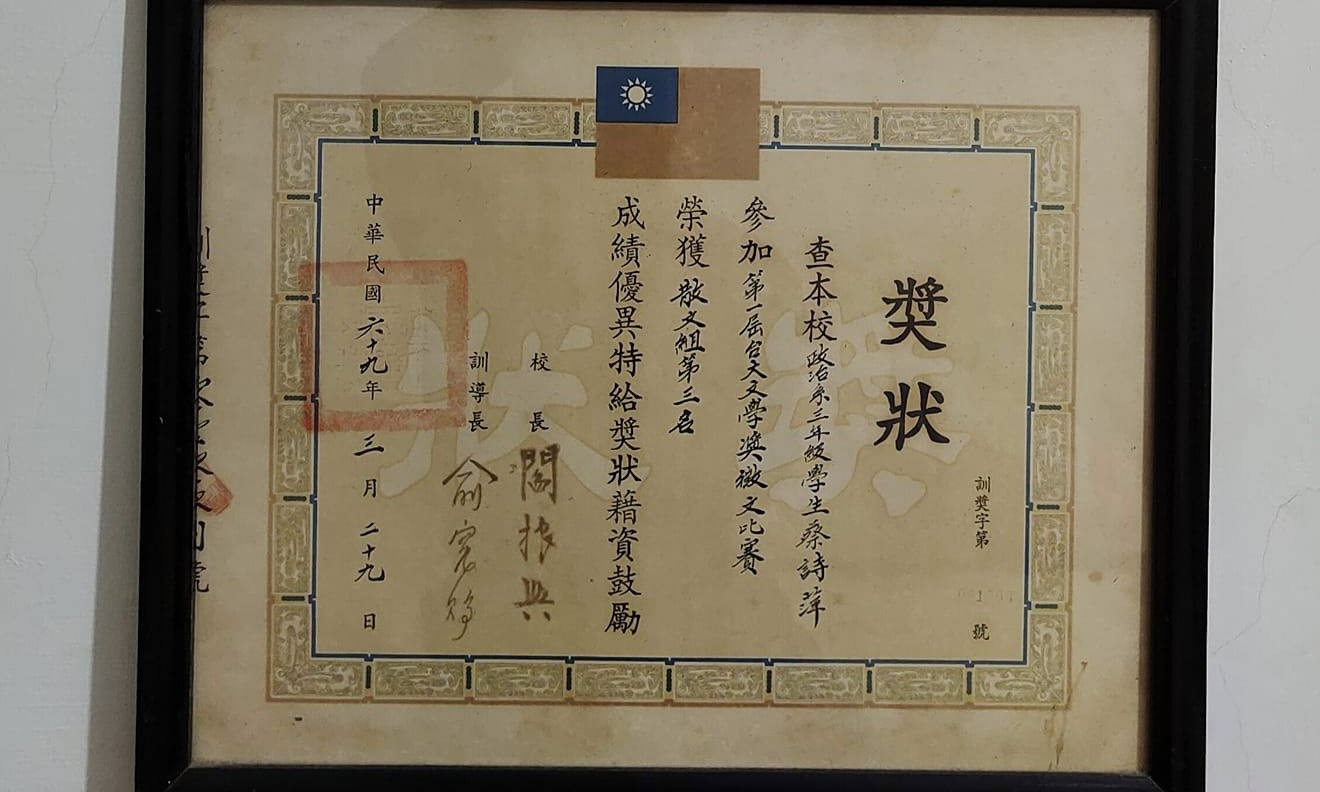 獎狀
訓獎字第 1 號
查本校政治系三年級學生蔡詩萍
參加第一屆台大文學獎徵文比賽
榮獲散文組第三名
成績優異特給獎狀藉資鼓勵
校長 閻振興
訓導長 俞寬賜
中華民國六十九年三月二十九日